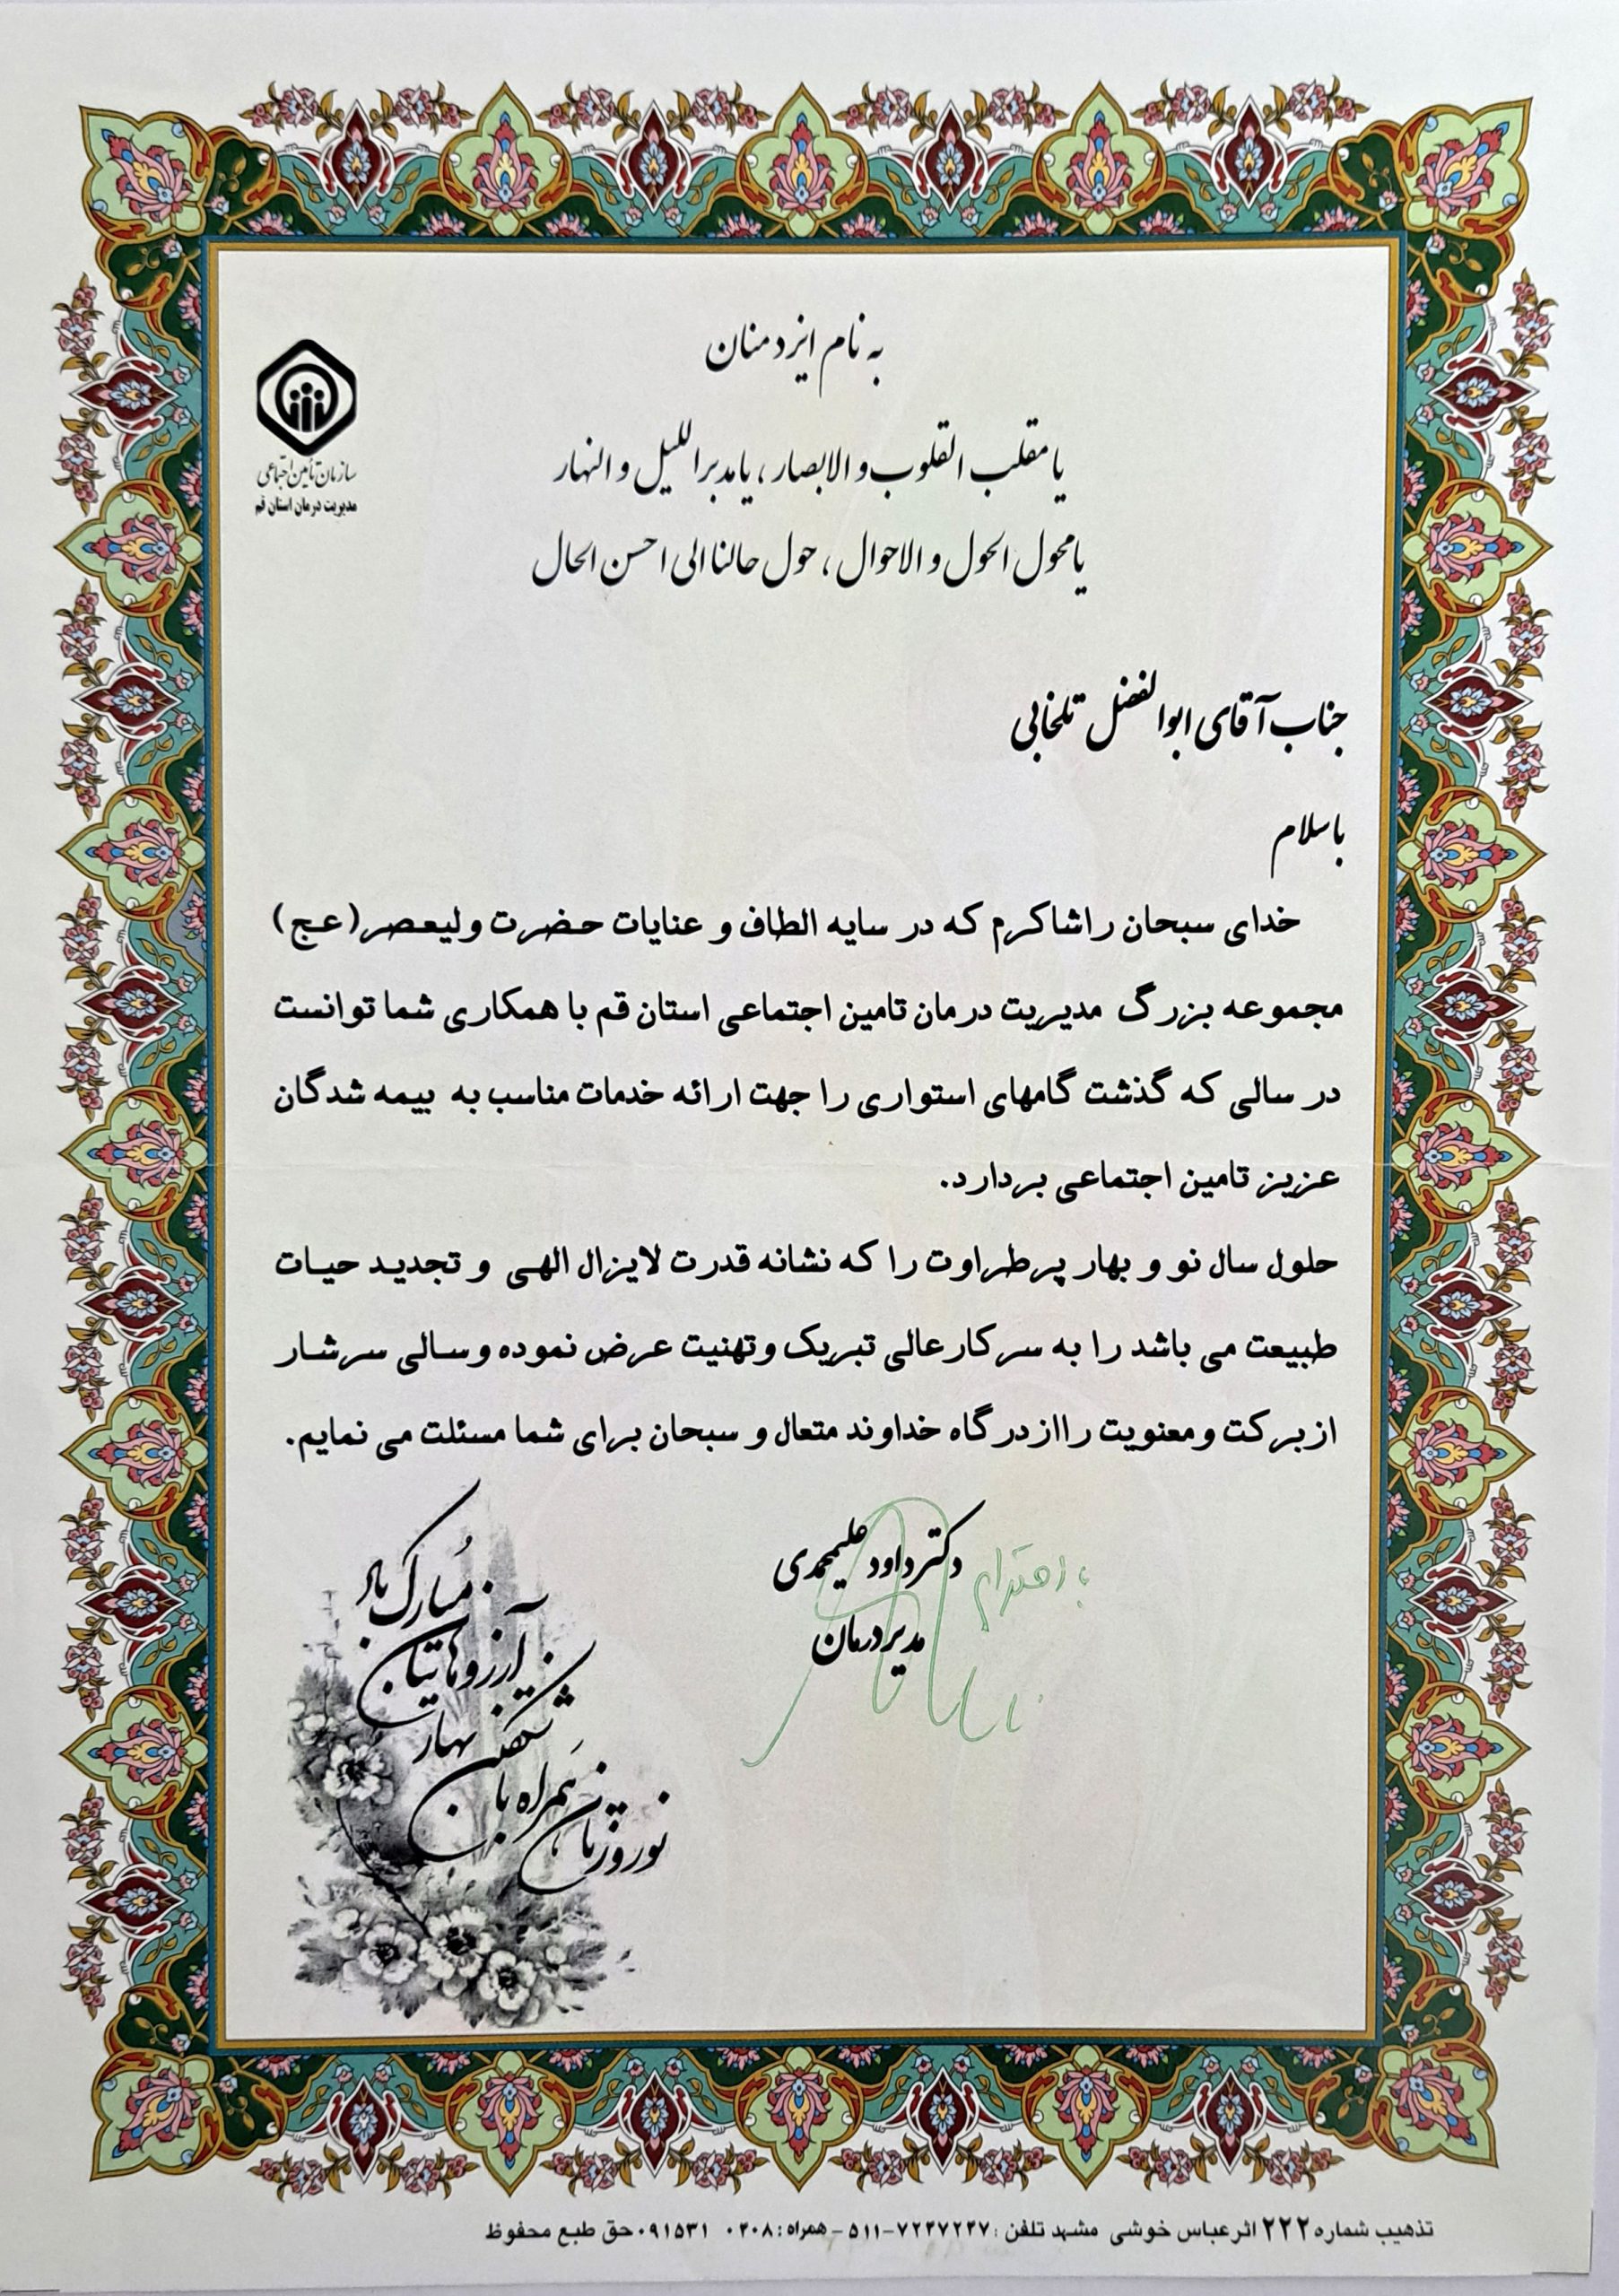 به نام ایزد منان
سازمان تأمین اجتماعی
مدیریت درمان استان قم
یا مقلب القلوب و الابصار ، یا مدبر اللیل و النهار
یا محول الحول و الاحوال ، حول حالنا الی احسن الحال
جناب آقای ابوالفضل تلخابی
با سلام
خدای سبحان راشاکرم که در سایه الطاف و عنایات حضرت ولیعصر(عج)
مجموعه بزرگ مدیریت درمان تامین اجتماعی استان قم با همکاری شما توانست
در سالی که گذشت گامهای استواری را جهت ارائه خدمات مناسب به بیمه شدگان
عزیز تامین اجتماعی بردارد.
حلول سال نو و بهار پرطراوت را که نشانه قدرت لایزال الهی و تجدید حیات
طبیعت می باشد را به سرکارعالی تبریک وتهنیت عرض نموده وسالی سرشار
ازبرکت ومعنویت راازدرگاه خداوند متعال و سبحان برای شما مسئلت می نمایم.
با احترام
دکتر داود علیمحمدی
مدیر درمان
نوروزتان همراه با
شکفتن بهار
آرزوهایتان
مبارک باد
تذهیب شماره ۲۲۲ اثرعباس خوشی مشهد تلفن : ۷۲۴۷۲۴۷-۵۱۱ - همراه : ۰۴۰۸ ۰۹۱۵۳۱ حق طبع محفوظ